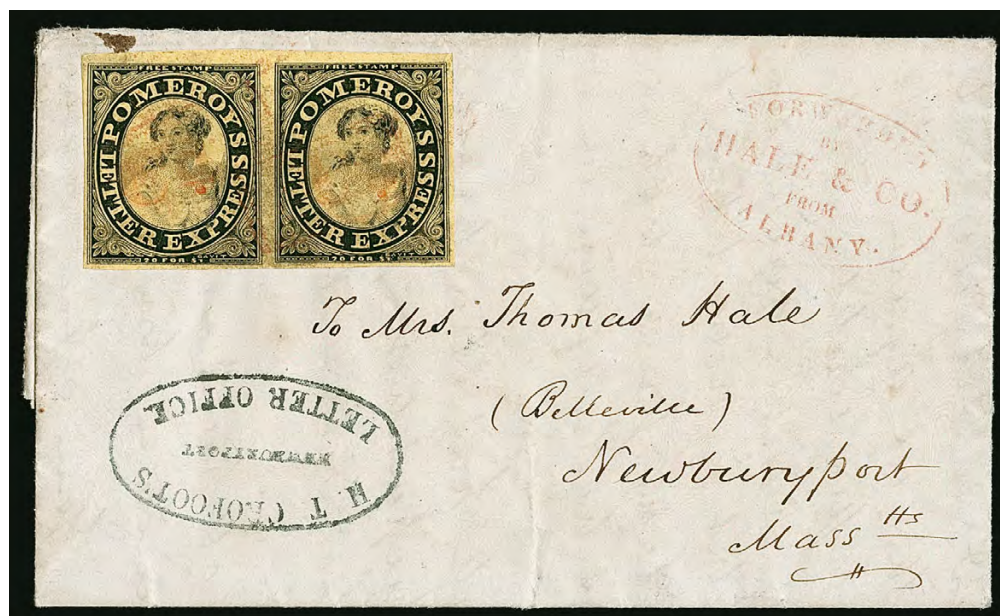 FREE STAMP
POMEROY'S
LETTER EXPRESS
20 FOR $1
FREE STAMP
POMEROY'S
LETTER EXPRESS
20 FOR $1
FORWARDED
BY
HALE & CO.
FROM
ALBANY.
To Mrs. Thomas Hale
(Belleville)
Newburyport
Mass Hs
H T CROFOOT'S
NEWBURYPORT
LETTER OFFICE